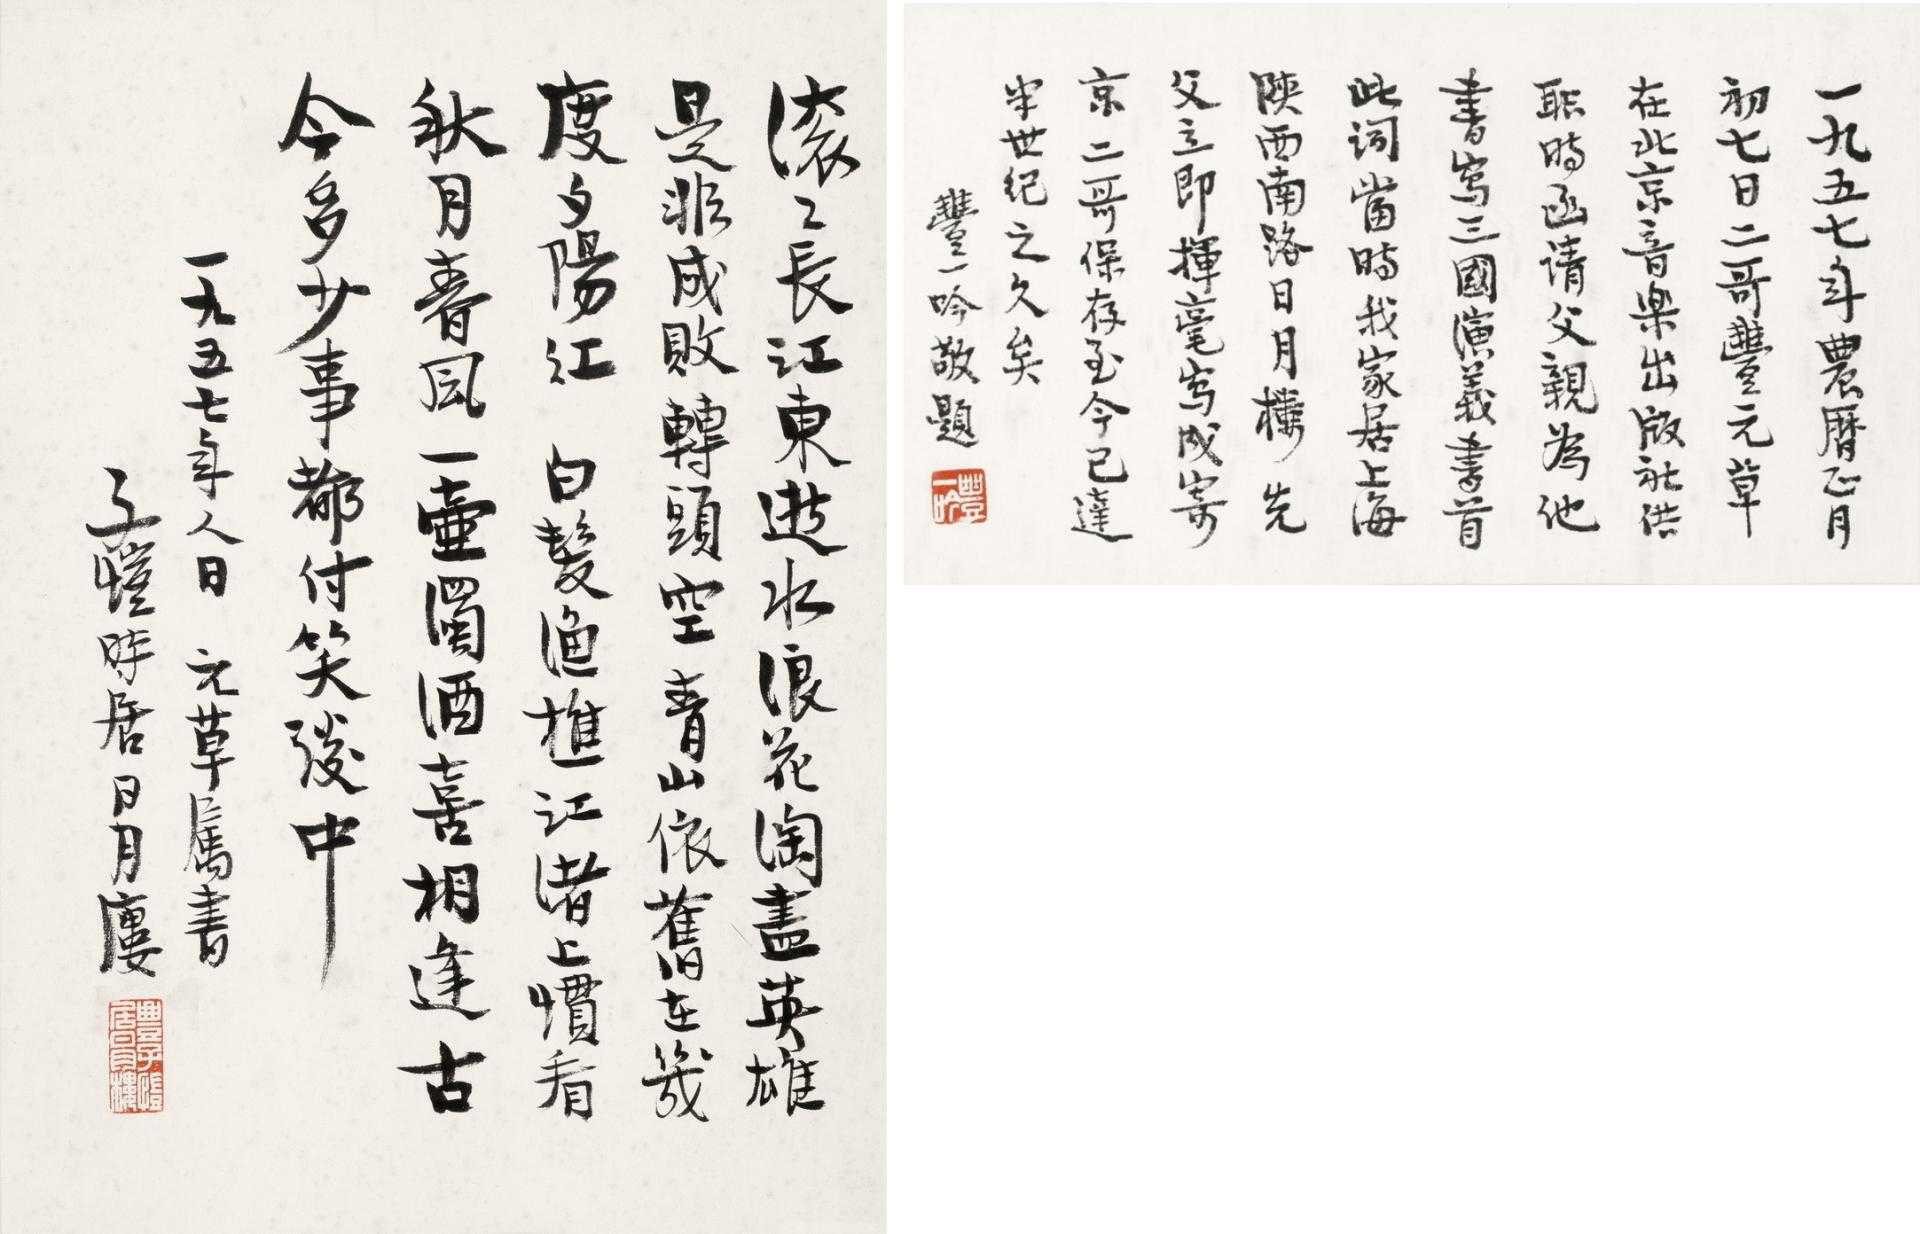 滚〻長江東逝水浪花淘盡英雄
是非成敗轉頭空青山依舊在幾
度夕陽江 白髮漁樵江渚上慣看
秋月春風一壺濁酒喜相逢古
今多少事都付笑談中
一九五七年人日 元草属書
子愷時居日月廔
豐子愷居日月樓
一九五七年農曆正月
初七日二哥豐元草
在北京音樂出版社供
职時函请父親为他
書寫三國演義書首
此词當時我家居上海
陝西南路日月樓先
父立即揮毫寫成寄
京二哥保存至今已達
半世纪之久矣
豐一吟敬題
豐一吟